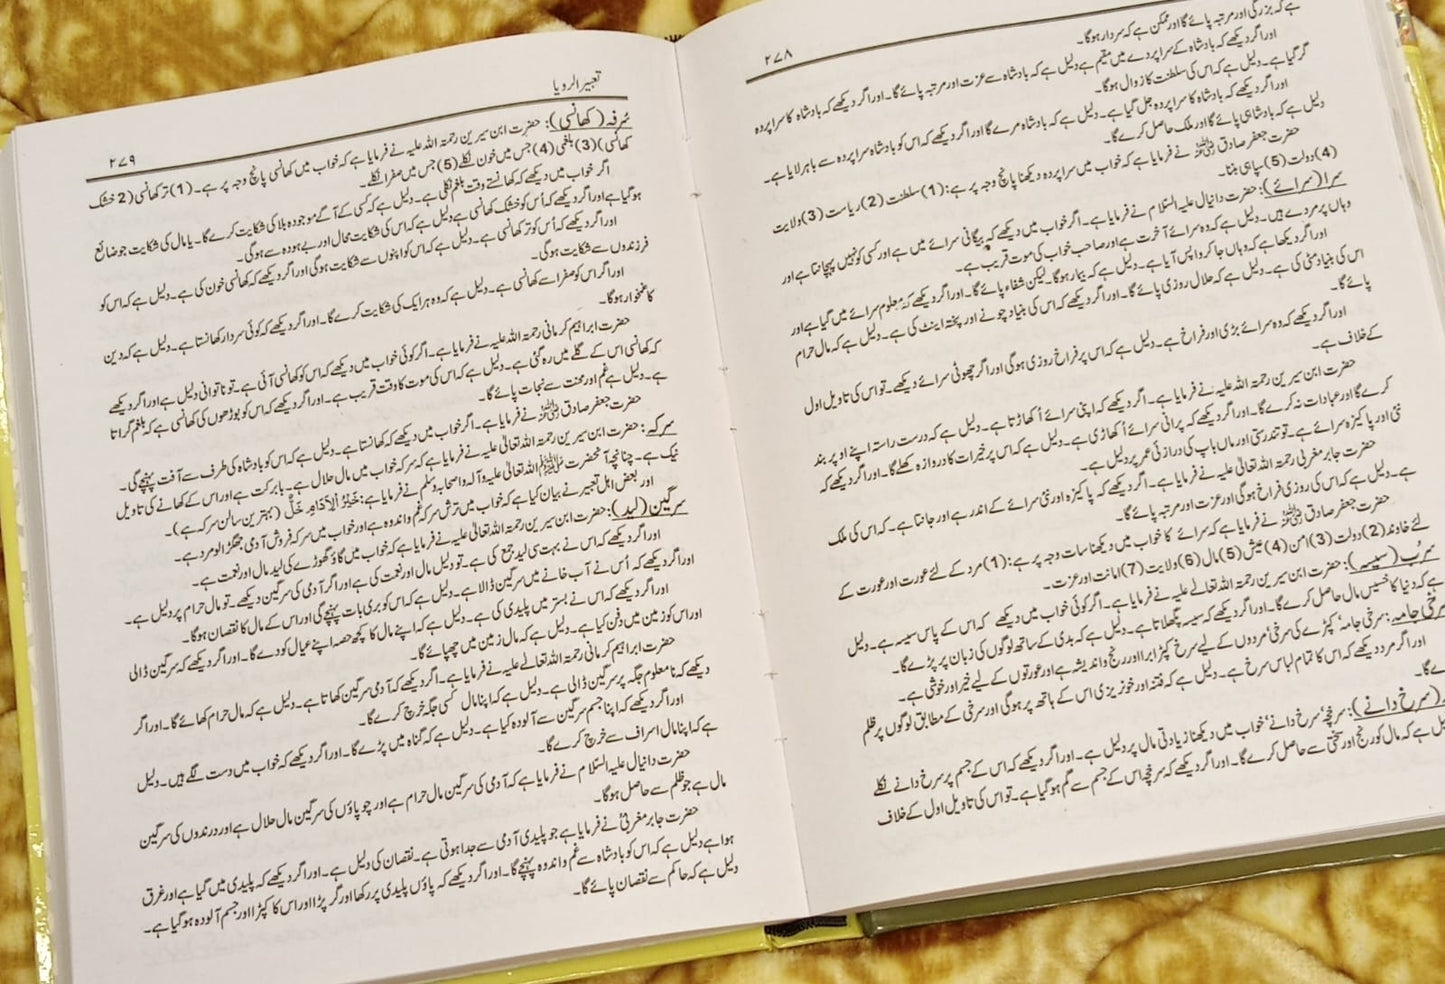 ۲۷۸
ہے کہ بزرگی اور مرتبہ پائے گا اور ممکن ہے کہ سردار ہوگا۔
اور اگر دیکھے کہ بادشاہ کے سراپردے میں مقیم ہے دلیل ہے کہ بادشاہ سے عزت اور مرتبہ پائے گا۔ اور اگر دیکھے کہ بادشاہ کا سراپردہ
گر گیا ہے۔ دلیل ہے کہ اس کی سلطنت کا زوال ہوگا۔
اور اگر دیکھے کہ بادشاہ کا سراپردہ جل گیا ہے۔ دلیل ہے کہ بادشاہ مرے گا اور اگر دیکھے کہ اس کو بادشاہ سراپردہ سے باہر لایا ہے۔
دلیل ہے کہ بادشاہی پائے گا اور ملک حاصل کرے گا۔
حضرت جعفر صادق رضی اللہ عنہ نے فرمایا ہے کہ خواب میں سراپردہ دیکھنا پانچ وجہ پر ہے: (1) سلطنت (2) ریاست (3) ولایت
(4) دولت (5) سپاہی بننا۔
سرا (سرائے): حضرت دانیال علیہ السلام نے فرمایا ہے۔ اگر خواب میں دیکھے کہ بیگانی سرائے میں ہے اور کسی کو نہیں پہچانتا ہے اور
وہاں پر مردے ہیں۔ دلیل ہے کہ وہ سرائے آخرت ہے اور صاحب خواب کی موت قریب ہے۔
اور اگر دیکھا ہے کہ وہاں جا کر واپس آیا ہے۔ دلیل ہے کہ بیمار ہوگا۔ لیکن شفاء پائے گا۔ اور اگر دیکھے کہ معلوم سرائے میں گیا ہے اور
اس کی بنیاد مٹی کی ہے۔ دلیل ہے کہ حلال روزی پائے گا۔ اور اگر دیکھے کہ اس کی بنیاد چونے اور پختہ اینٹ کی ہے۔ دلیل ہے کہ مال حرام
پائے گا۔
اور اگر دیکھے کہ وہ سرائے بڑی اور فراخ ہے۔ دلیل ہے کہ اس پر فراخ روزی ہوگی اور اگر چھوٹی سرائے دیکھے۔ تو اس کی تاویل اول
کے خلاف ہے۔
حضرت ابن سیرین رحمۃ اللہ علیہ نے فرمایا ہے۔ اگر دیکھے کہ اپنی سرائے اُکھاڑتا ہے۔ دلیل ہے کہ درست راستہ اپنے اوپر بند
کرے گا اور عبادات نہ کرے گا۔ اور اگر دیکھے کہ پرانی سرائے اُکھاڑی ہے۔ دلیل ہے کہ اس پر خیرات کا دروازہ کھلے گا۔ اور اگر دیکھے کہ
نئی اور پاکیزہ سرائے ہے۔ تو تندرستی اور ماں باپ کی درازئی عمر پر دلیل ہے۔
حضرت جابر مغربی رحمۃ اللہ تعالیٰ علیہ نے فرمایا ہے۔ اگر دیکھے کہ پاکیزہ اور نئی سرائے کے اندر ہے اور جانتا ہے۔ کہ اس کی ملک
ہے۔ دلیل ہے کہ اس کی روزی فراخ ہوگی اور عزت اور مرتبہ پائے گا۔
حضرت جعفر صادق رضی اللہ عنہ نے فرمایا ہے کہ سرائے کا خواب میں دیکھنا سات وجہ پر ہے: (1) مرد کے لئے عورت اور عورت کے
لئے خاوند (2) دولت (3) امن (4) عیش (5) مال (6) ولایت (7) امانت اور عزت۔
سرُب (سیسہ): حضرت ابن سیرین رحمۃ اللہ تعالےٰ علیہ نے فرمایا ہے۔ اگر کوئی خواب میں دیکھے کہ اس کے پاس سیسہ ہے۔ دلیل
ہے کہ دنیا کا خسیس مال حاصل کرے گا۔ اور اگر دیکھے کہ سیسہ پگھلاتا ہے۔ دلیل ہے کہ بدی کے ساتھ لوگوں کی زبان پر پڑے گا۔
سرخی جامہ: سرخی جامہ' کپڑے کی سرخی' مردوں کے لیے سرخ کپڑا برا اور رنج و اندیشہ ہے اور عورتوں کے لیے خیر اور خوشی ہے۔
اور اگر مرد دیکھے کہ اس کا تمام لباس سرخ ہے۔ دلیل ہے کہ فتنہ اور خونریزی اس کے ہاتھ پر ہوگی اور سرخی کے مطابق لوگوں پر ظلم
(سرخ دانے): سرخچہ' سرخ دانے' خواب میں دیکھنا زیادتی مال پر دلیل ہے۔ اور اگر دیکھے کہ اس کے جسم پر سرخ دانے نکلے
ہے کہ مال کو رنج اور سختی سے حاصل کرے گا۔ اور اگر دیکھے کہ سرخچہ اس کے جسم سے گم ہوگیا ہے۔ تو اس کی تاویل اول کے خلاف
تعبیر الرویا
۲۷۹
سُرفہ (کھانسی): حضرت ابن سیرین رحمۃ اللہ علیہ نے فرمایا ہے کہ خواب میں کھانسی پانچ وجہ پر ہے۔ (1) تر کھانسی (2 خشک
کھانسی) (3) بلغمی (4) جس میں خون نکلے (5) جس میں صفرا نکلے۔
اگر خواب میں دیکھے کہ کھانستے وقت بلغم نکلی ہے۔ دلیل ہے کہ کسی کے آگے موجودہ بلا کی شکایت کرے گا۔ یا مال کی شکایت جو ضائع
ہوگیا ہے اور اگر دیکھے کہ اُس کو خشک کھانسی ہے دلیل ہے کہ اس کی شکایت محال اور بے ہودہ سے ہوگی۔
اور اگر دیکھے کہ اُس کو تر کھانسی ہے۔ دلیل ہے کہ اس کو اپنوں سے شکایت ہوگی اور اگر دیکھے کہ کھانسی خون کی ہے۔ دلیل ہے کہ اس کو
فرزندوں سے شکایت ہوگی۔
اور اگر اس کو صفرا سے کھانسی ہے۔ دلیل ہے کہ وہ ہر ایک کی شکایت کرے گا۔ اور اگر دیکھے کہ کوئی سردار کھانستا ہے۔ دلیل ہے کہ دین
کا غمخوار ہوگا۔
حضرت ابراہیم کرمانی رحمۃ اللہ علیہ نے فرمایا ہے۔ اگر کوئی خواب میں دیکھے کہ اس کو کھانسی آئی ہے۔ تو ناتوانی دلیل ہے اور اگر دیکھے
کہ کھانسی اس کے گلے میں رہ گئی ہے۔ دلیل ہے کہ اس کی موت کا وقت قریب ہے۔ اور اگر دیکھے کہ اس کو بوڑھوں کی کھانسی ہے کہ بلغم گراتا
ہے۔ دلیل ہے غم اور محنت سے نجات پائے گا۔
حضرت جعفر صادق رضی اللہ عنہ نے فرمایا ہے۔ اگر خواب میں دیکھے کہ کھانستا ہے۔ دلیل ہے کہ اس کو بادشاہ کی طرف سے آفت پہنچے گی۔
سرکہ: حضرت ابن سیرین رحمۃ اللہ تعالیٰ علیہ نے فرمایا ہے کہ سرکہ خواب میں مال حلال ہے۔ بابرکت ہے اور اس کے کھانے کی تاویل
نیک ہے۔ چنانچہ آنحضرت صلی اللہ تعالیٰ علیہ وآلہ واصحابہ وسلم نے فرمایا ہے: خَيْرُ الْاِدَامِ خَلٌّ (بہترین سالن سرکہ ہے)۔
اور بعض اہل تعبیر نے بیان کیا ہے کہ خواب میں ترش سرکہ غم و اندوہ ہے اور خواب میں سرکہ فروش آدمی جھگڑالو مرد ہے۔
سرگین (لید): حضرت ابن سیرین رحمۃ اللہ تعالیٰ علیہ نے فرمایا ہے کہ خواب میں گاؤ گھوڑے کی لید مال اور نعمت ہے۔
اور اگر دیکھے کہ اس نے بہت سی لید جمع کی ہے۔ تو دلیل مال اور نعمت کی ہے اور اگر آدمی کی سرگین دیکھے۔ تو مال حرام پر دلیل ہے۔
اور اگر دیکھے کہ اُس نے آب خانے میں سرگین ڈالا ہے۔ دلیل ہے کہ اس کو بری بات پہنچے گی اور اس کے مال کا نقصان ہوگا۔
اور اگر دیکھے کہ اس نے بستر میں پلیدی کی ہے۔ دلیل ہے کہ اپنے مال کا کچھ حصہ اپنے عیال کو دے گا۔ اور اگر دیکھے کہ سرگین ڈالی
اور اس کو زمین میں دفن کیا ہے۔ دلیل ہے کہ مال زمین میں چھپائے گا۔
حضرت ابراہیم کرمانی رحمۃ اللہ تعالےٰ علیہ نے فرمایا ہے۔ اگر دیکھے کہ آدمی سرگین کھاتا ہے۔ دلیل ہے کہ مال حرام کھائے گا۔ اور اگر
دیکھے کہ نامعلوم جگہ پر سرگین ڈالی ہے۔ دلیل ہے کہ اپنا مال کسی جگہ خرچ کرے گا۔
اور اگر دیکھے کہ اپنا جسم سرگین سے آلودہ کیا ہے۔ دلیل ہے کہ گناہ میں پڑے گا۔ اور اگر دیکھے کہ خواب میں دست لگے ہیں۔ دلیل
ہے کہ اپنا مال اسراف سے خرچ کرے گا۔
حضرت دانیال علیہ السّلام نے فرمایا ہے کہ آدمی کی سرگین مال حرام ہے اور چوپاؤں کی سرگین مال حلال ہے اور درندوں کی سرگین
مال ہے جو ظلم سے حاصل ہوگا۔
حضرت جابر مغربیؒ نے فرمایا ہے جو پلیدی آدمی سے جدا ہوتی ہے۔ نقصان کی دلیل ہے۔ اور اگر دیکھے کہ پلیدی میں گیا ہے اور غرق
ہوا ہے دلیل ہے کہ اس کو بادشاہ سے غم و اندوہ پہنچے گا۔ اور اگر دیکھے کہ پاؤں پلیدی پر رکھا اور گر پڑا اور اس کا کپڑا اور جسم آلودہ ہوگیا ہے۔
دلیل ہے کہ حاکم سے نقصان پائے گا۔